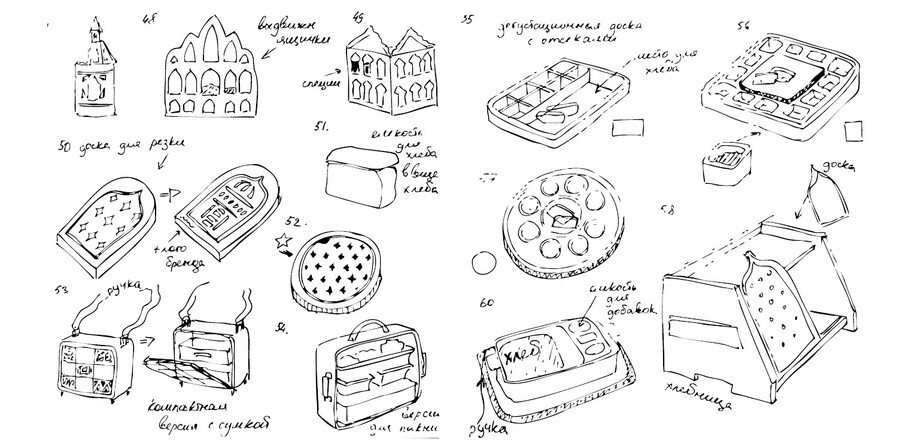 48
49
выдвижн
ящички
специи
50 доска для резки
+ лого
бренда
51.
емкость
для
хлеба
в виде
хлеба
52.
53
ручка
компактная
версия с сумкой
54.
версия
для пикни
55
дегустационная доска
с отсеками
место для
хлеба
56
57
58
доска
хлебница
60
емкость
для
добавок
хлеб
ручка